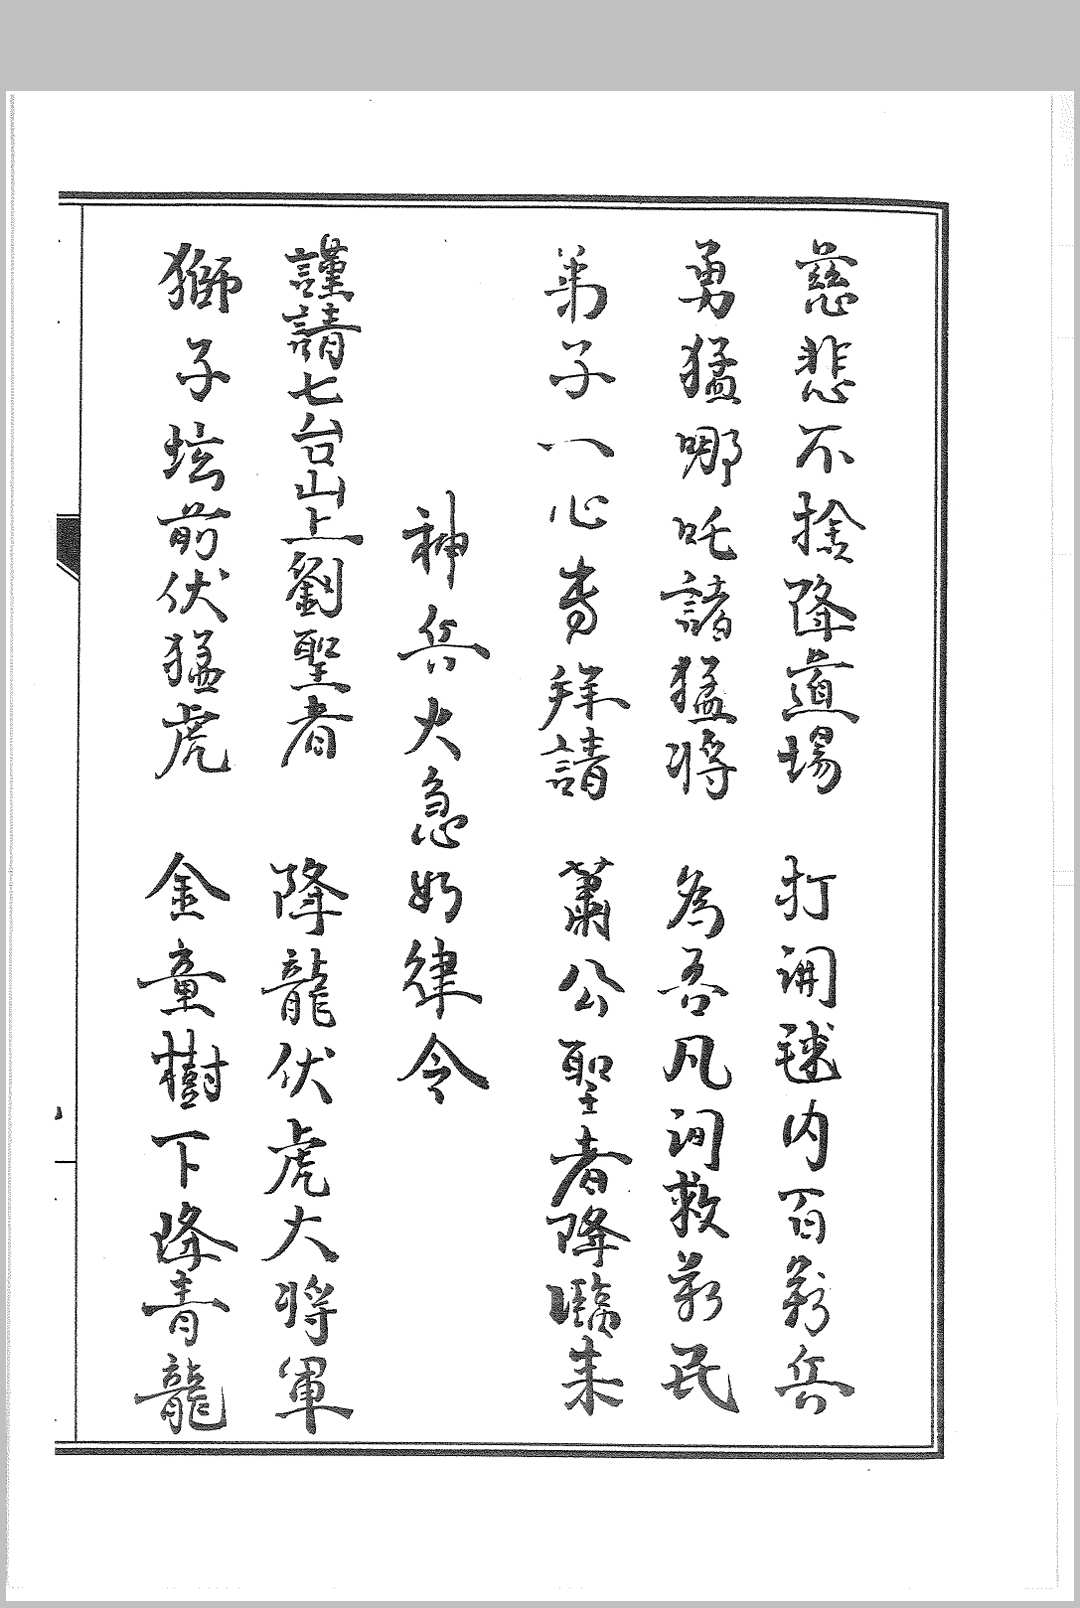 慈悲不捨降道場　打開毬內百萬兵
勇猛哪吒諸猛將　為吾凡間救萬民
弟子一心專拜請　蕭公聖者降臨來
神兵火急如律令
謹請七台山上劉聖者　降龍伏虎大將軍
獅子坛前伏猛虎　金童樹下降青龍